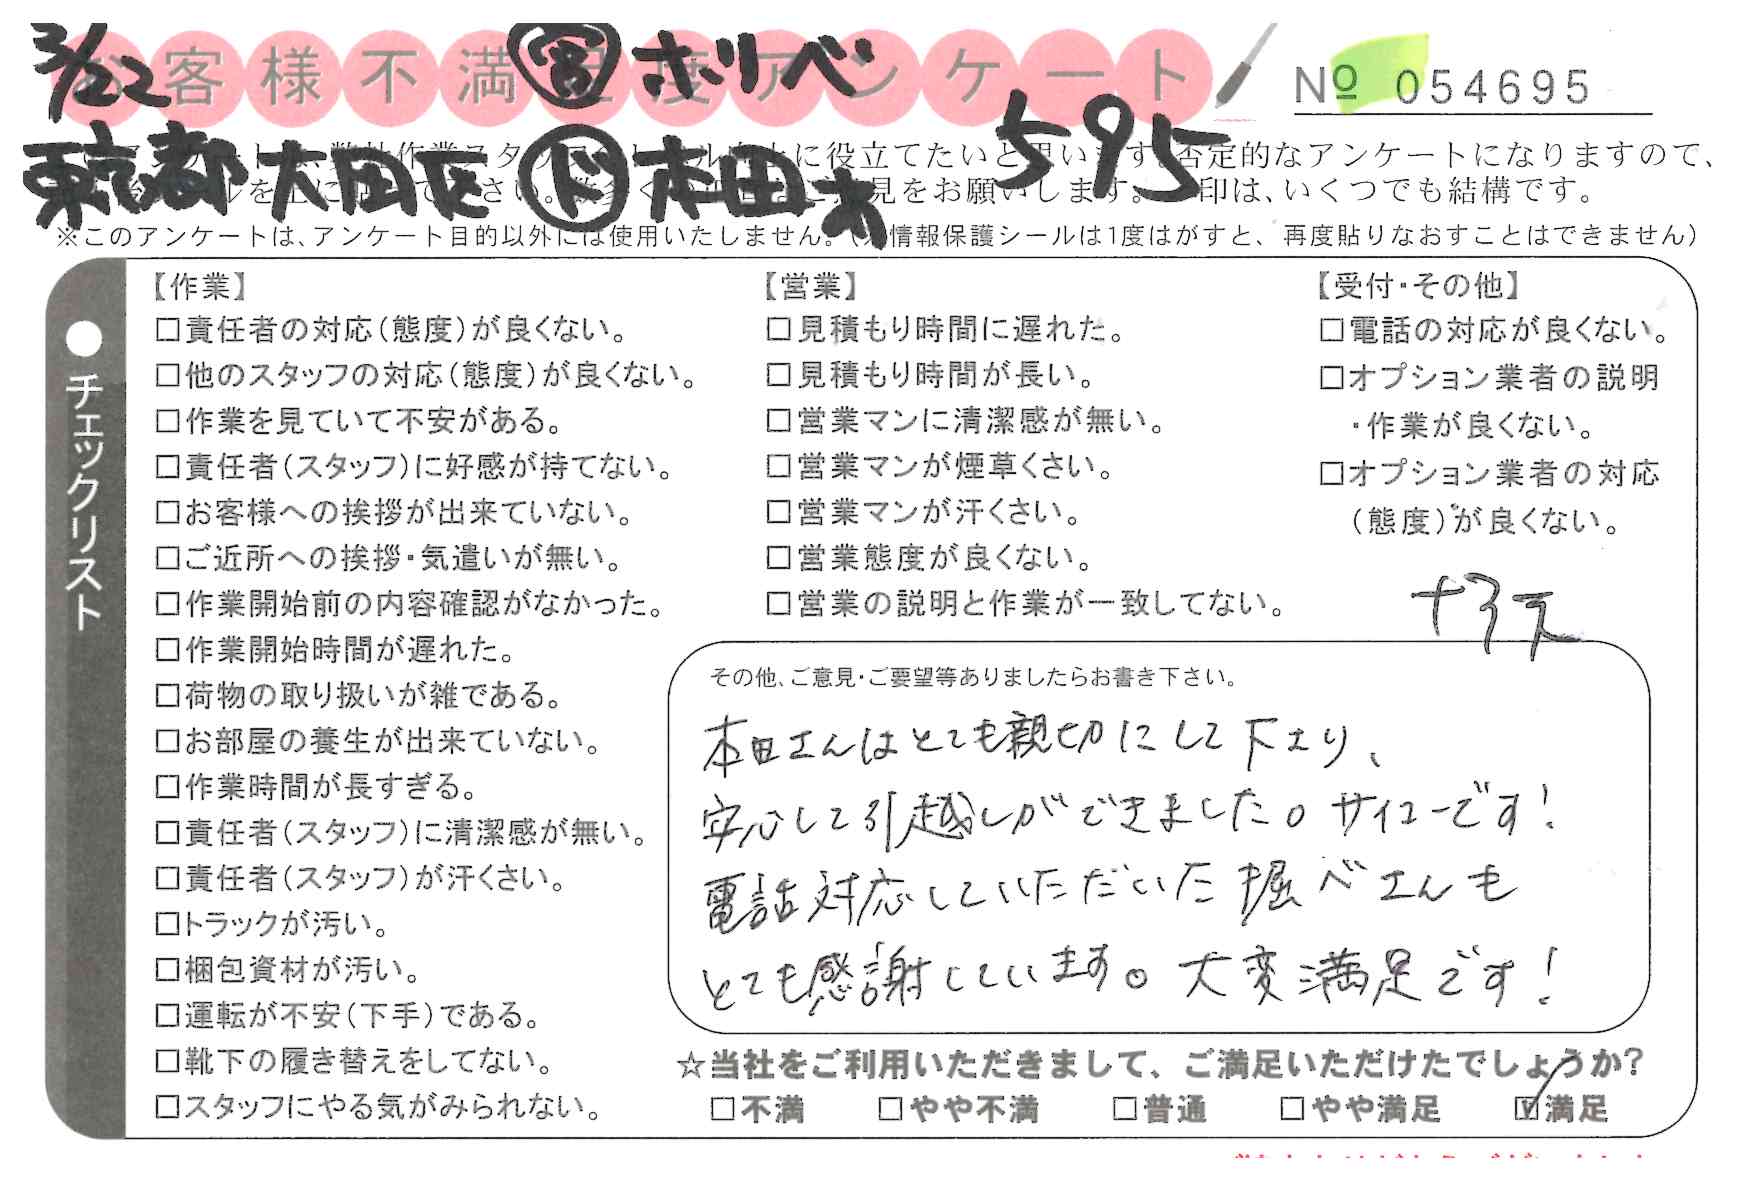 3/22 営 ホリベ
お客様不満足度アンケート
№ 054695
595
東京都大田区 ド 本田
に役立てたいと思います。否定的なアンケートになりますので、
見をお願いします。 印は、いくつでも結構です。
※このアンケートは、アンケート目的以外には使用いたしません。(
情報保護シールは1度はがすと、再度貼りなおすことはできません)
●チェックリスト
【作業】
□責任者の対応(態度)が良くない。
□他のスタッフの対応(態度)が良くない。
□作業を見ていて不安がある。
□責任者(スタッフ)に好感が持てない。
□お客様への挨拶が出来ていない。
□ご近所への挨拶・気遣いが無い。
□作業開始前の内容確認がなかった。
□作業開始時間が遅れた。
□荷物の取り扱いが雑である。
□お部屋の養生が出来ていない。
□作業時間が長すぎる。
□責任者(スタッフ)に清潔感が無い。
□責任者(スタッフ)が汗くさい。
□トラックが汚い。
□梱包資材が汚い。
□運転が不安(下手)である。
□靴下の履き替えをしてない。
□スタッフにやる気がみられない。
【営業】
□見積もり時間に遅れた。
□見積もり時間が長い。
□営業マンに清潔感が無い。
□営業マンが煙草くさい。
□営業マンが汗くさい。
□営業態度が良くない。
□営業の説明と作業が一致してない。
【受付・その他】
□電話の対応が良くない。
□オプション業者の説明
・作業が良くない。
□オプション業者の対応
(態度)が良くない。
その他、ご意見・ご要望等ありましたらお書き下さい。
本田さんはとても親切にして下さり、
安心して引越しができました。サイコーです!
電話対応していただいた堀べさんも
とても感謝しています。大変満足です!
☆当社をご利用いただきまして、ご満足いただけたでしょうか?
□不満 □やや不満 □普通 □やや満足 ☑満足